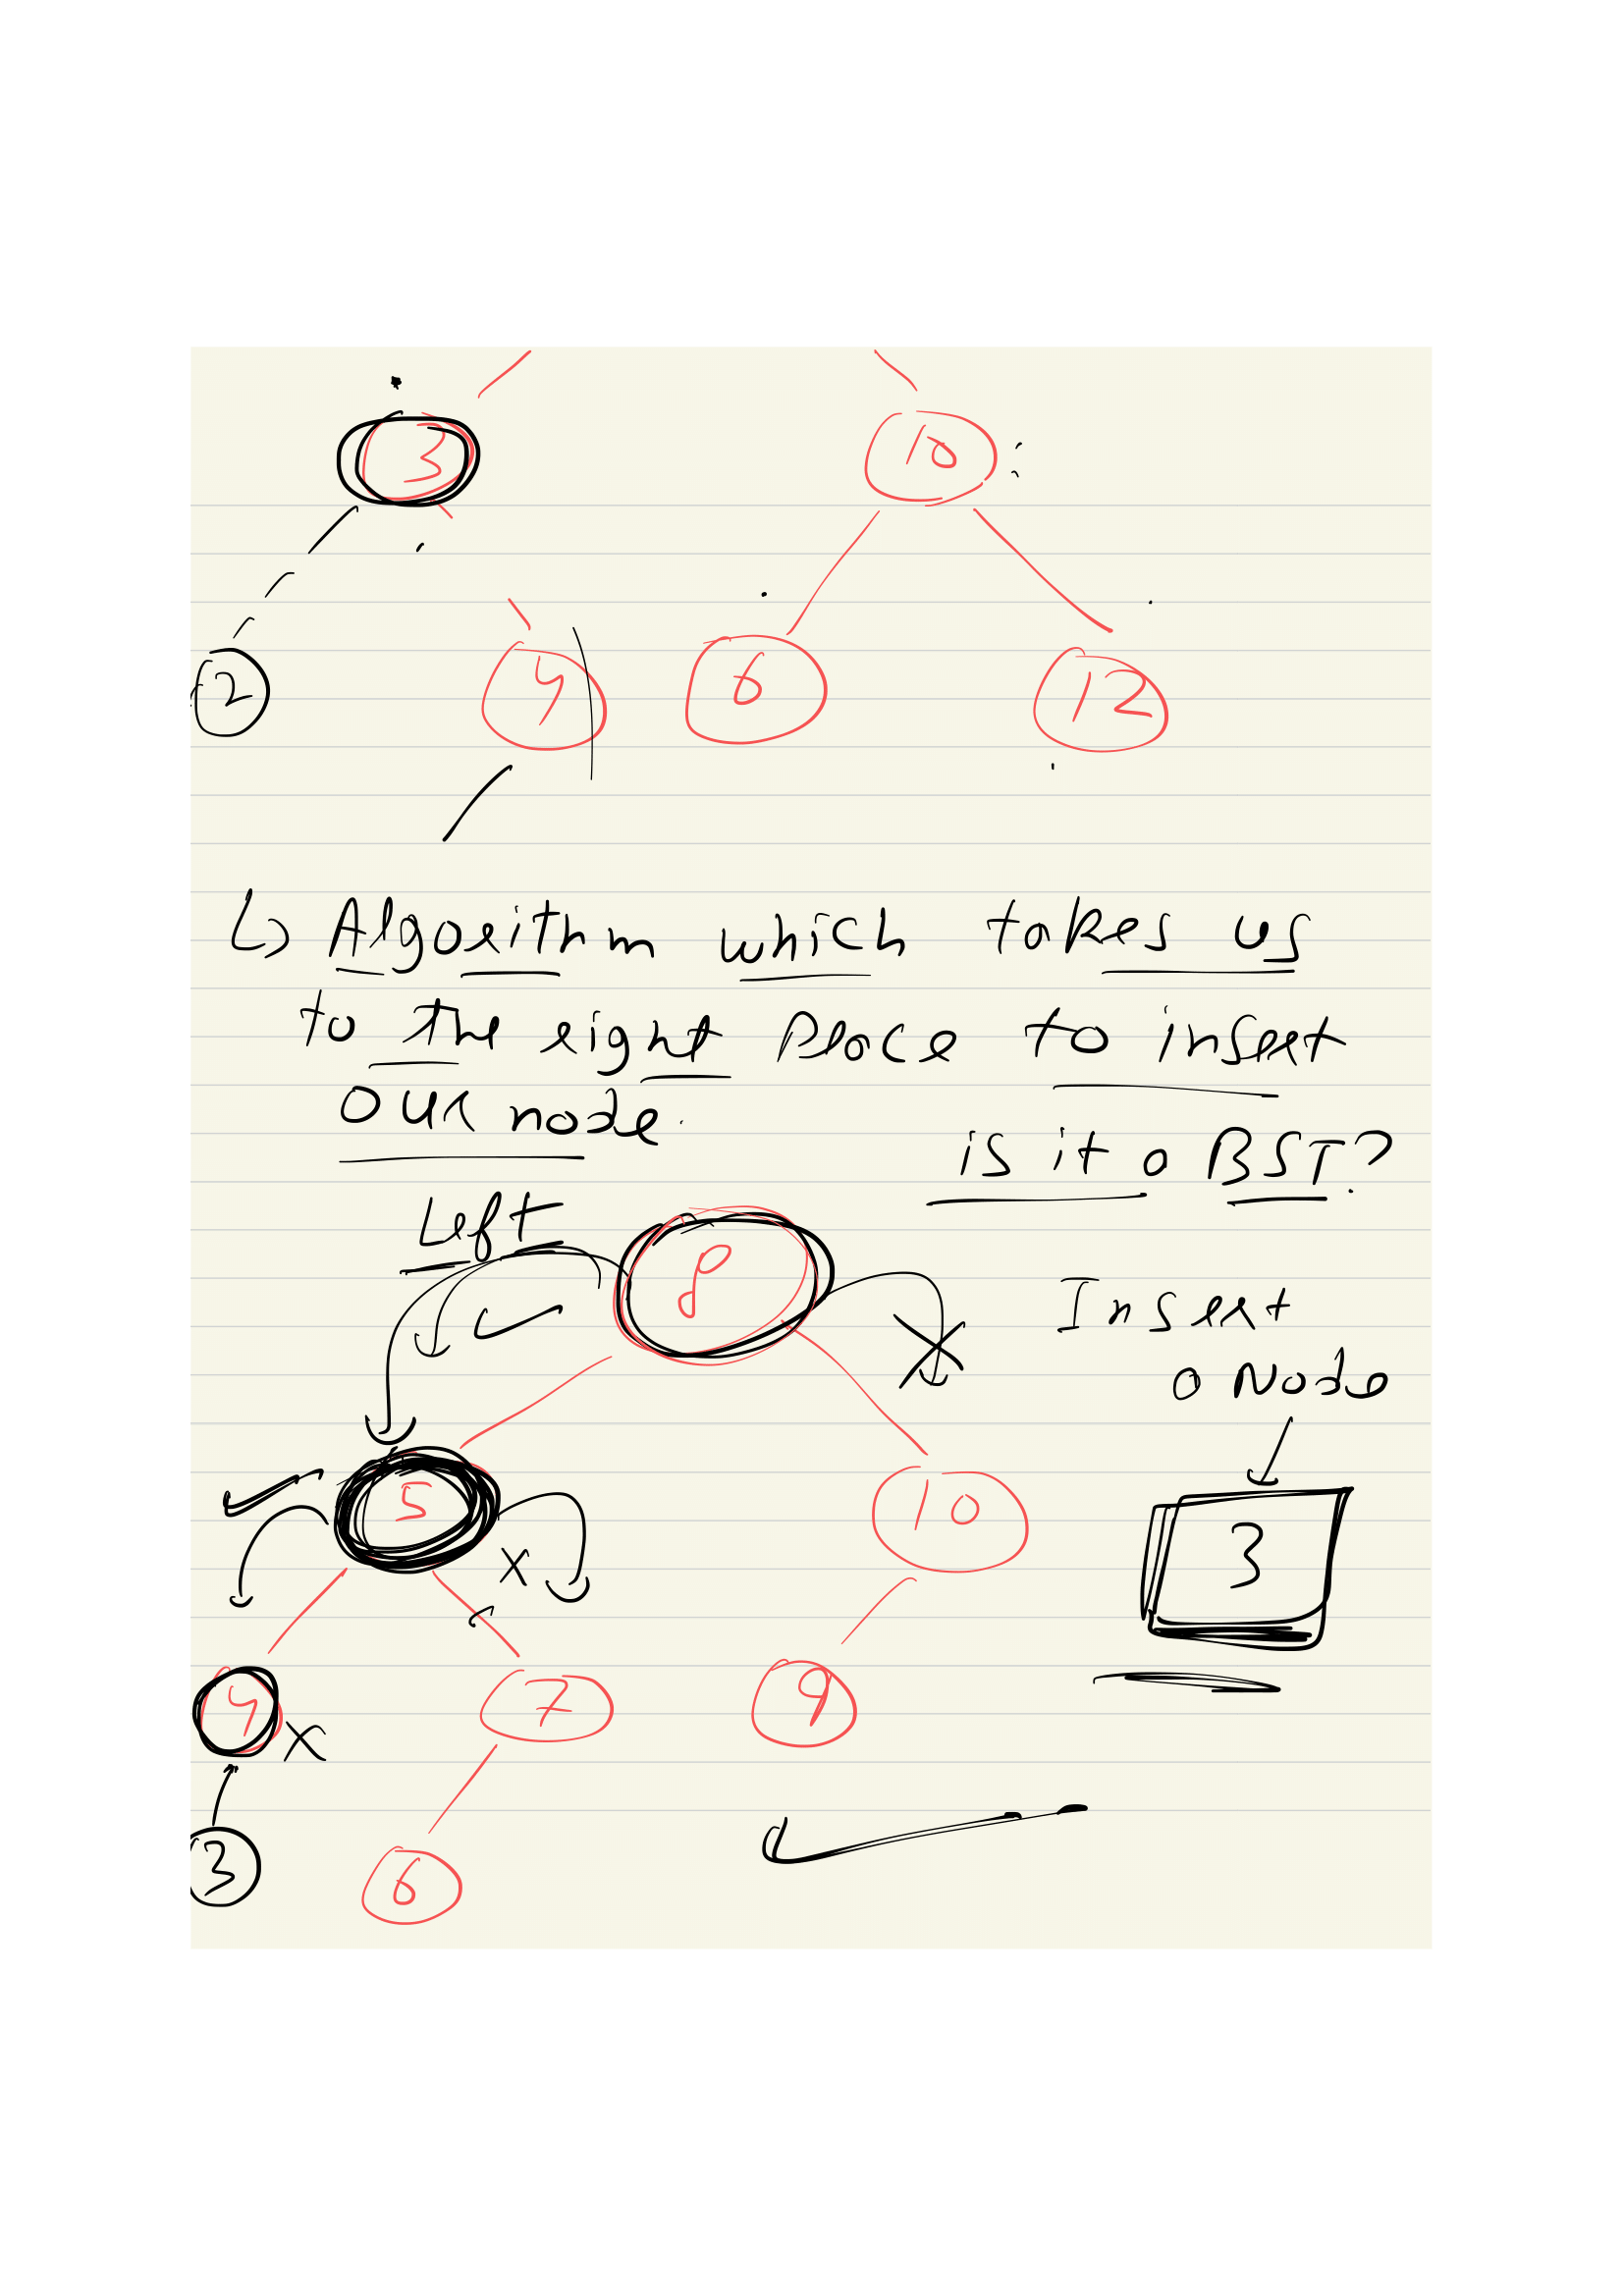 3 10
2 4 6 12
↳ Algorithm which takes us
to the right place to insert
our node.
is it a BST?
Left
8
Insert
a Node
5 10 3
4 x 7 9
x
3 6